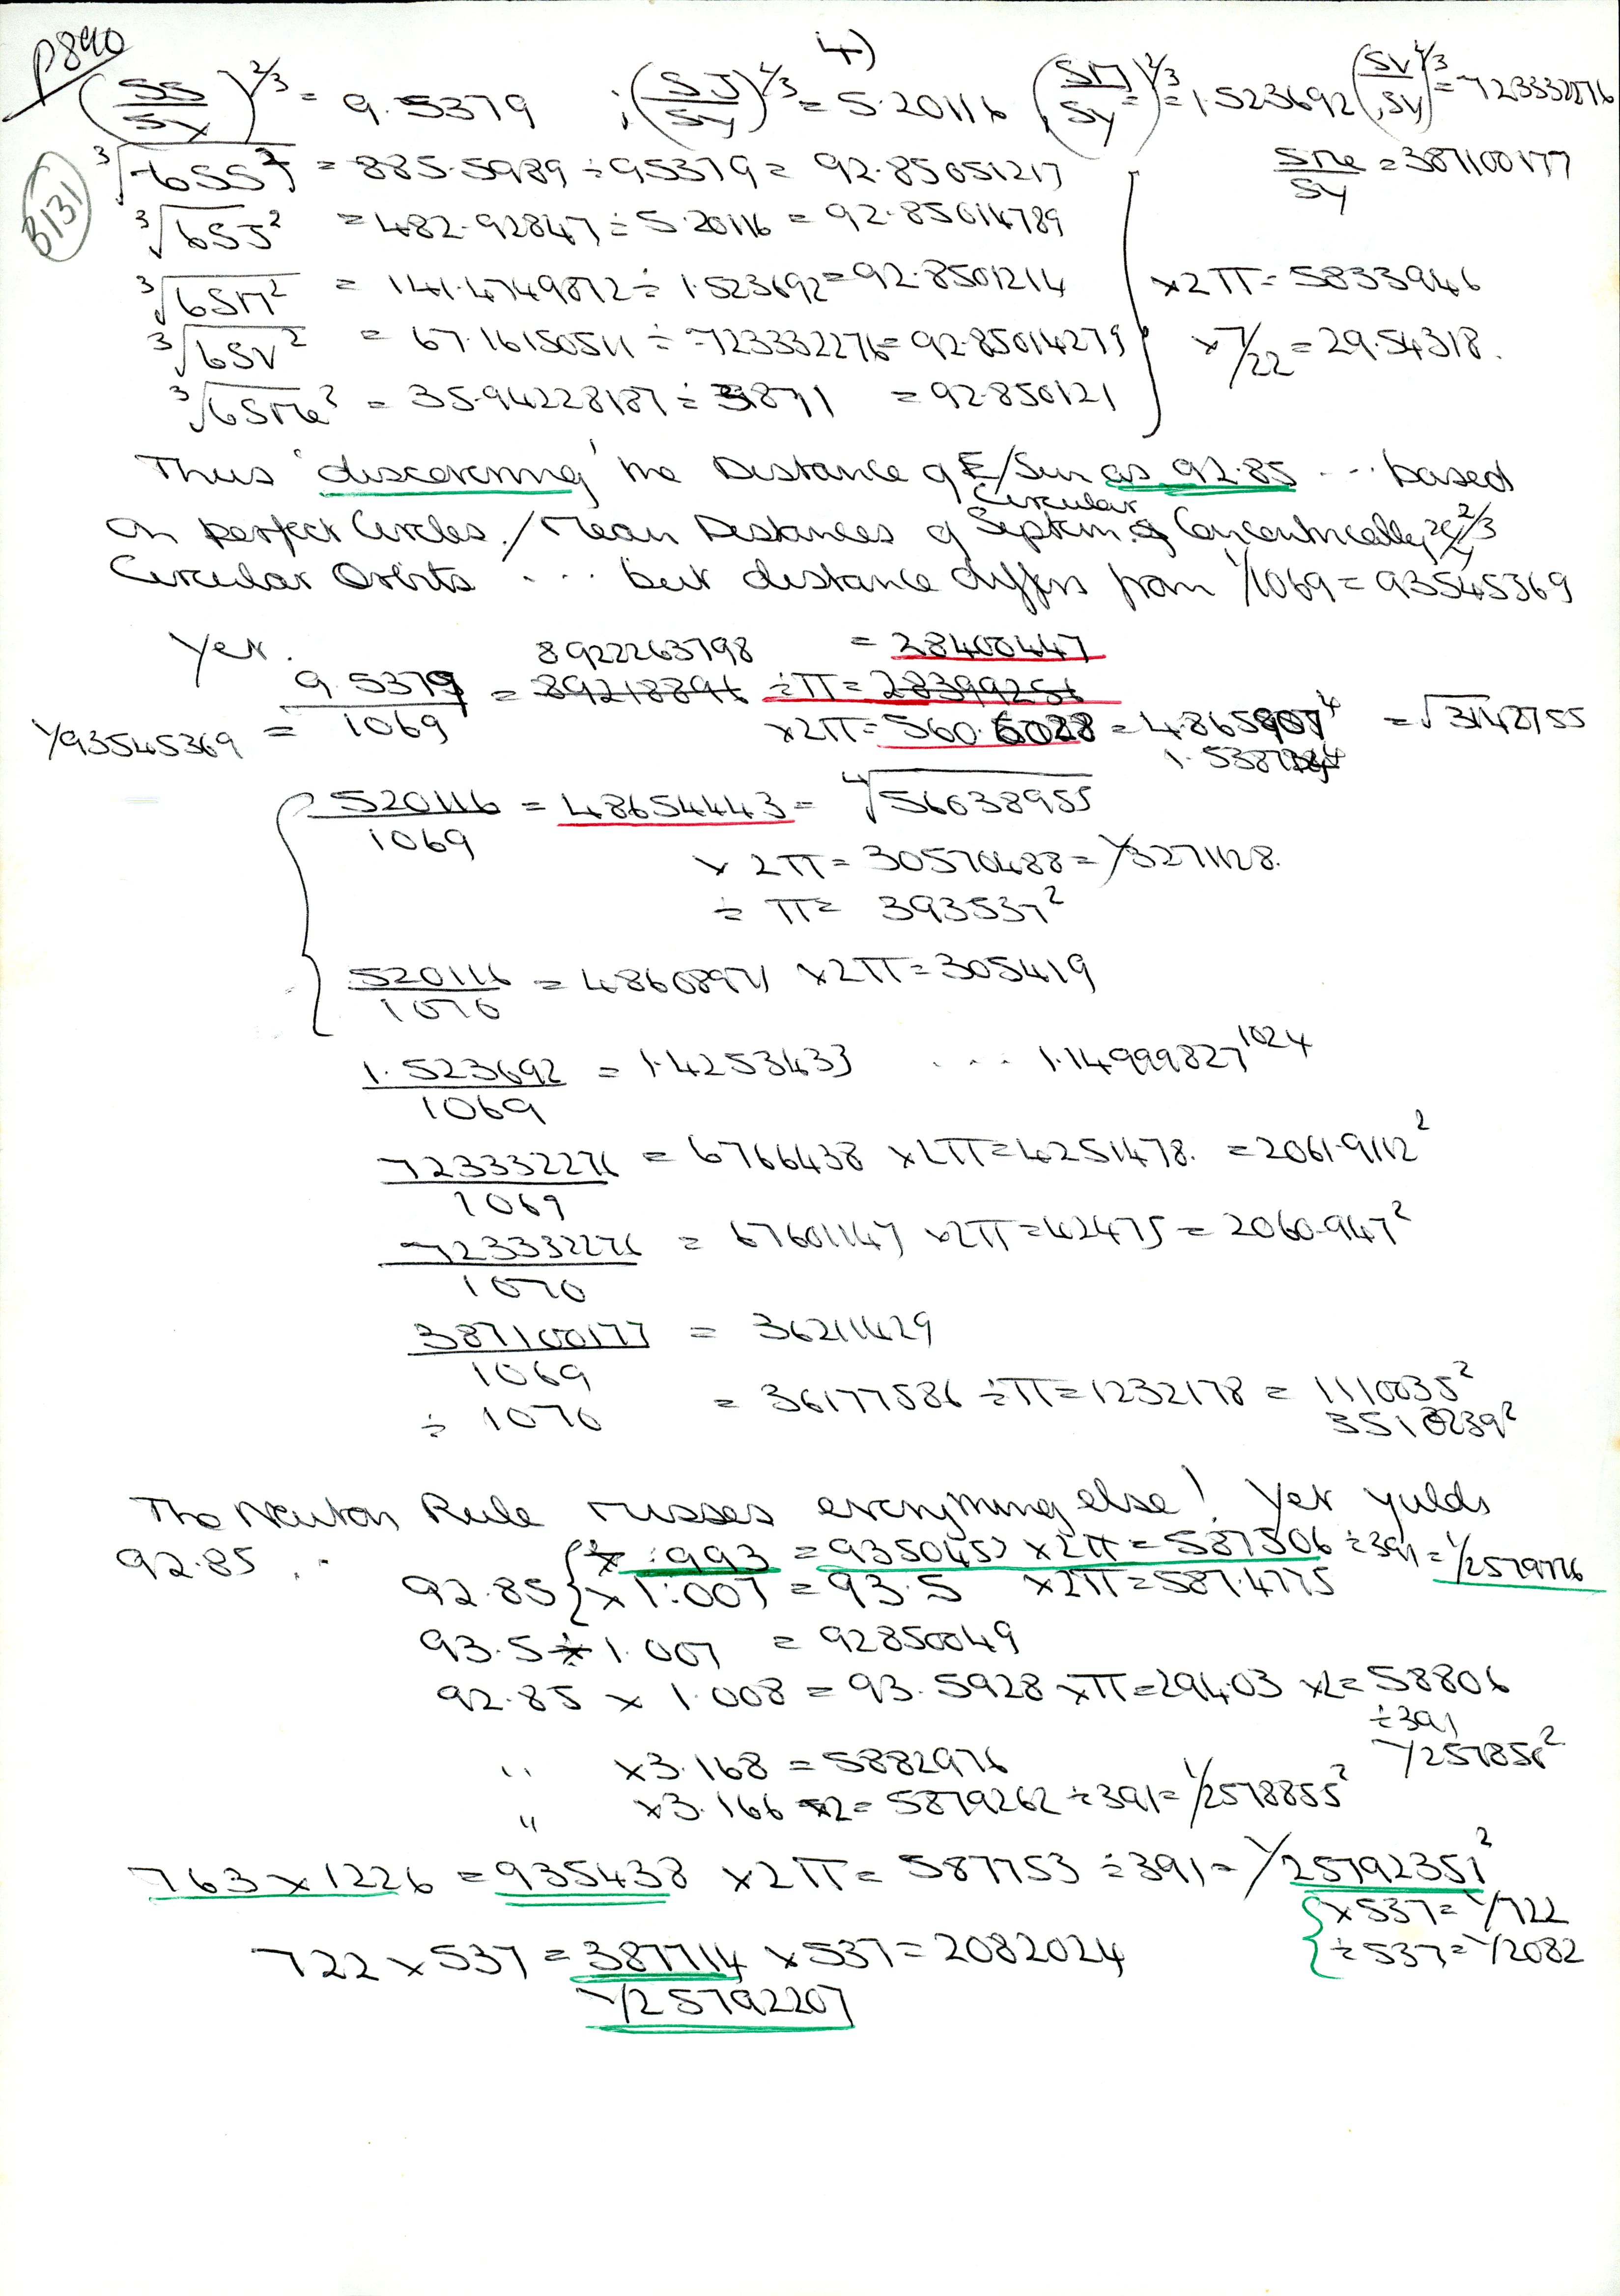 P890
4)
(SS/SY)^2/3 = 9.5379 ; (SJ/SY)^2/3 = 5.20116 (SM/SY)^2/3 = 1.523692 (SV/SY)^2/3 = 723332276
B131
∛6SS² = 885.5989 ÷ 95379 = 92.85051217
SMe/SY = 387100177
∛6SJ² = 482.92847 ÷ 5.20116 = 92.85014789
∛6SM² = 141.4749872 ÷ 1.523692 = 92.8501214
×2π = 5833946
∛6SV² = 67.16150511 ÷ .723332276 = 92.85014279
×7/22 = 29.54318.
∛6SMe² = 35.94228187 ÷ 3871 = 92.850121
Thus 'discovering' the Distance of E/Sun as 92.85 ... based
on perfect Circles / Mean Distances of Circular System of Concentrically 2/3
Circular Orbits ... but distance differs from 1/1069 = 93545369
Yet.
8922263798 = 28400447
1/93545369 = 9.5379/1069 = 89218896 ÷π = 28399256
×2π = 560.6028 = 4.865907⁴ = √3142755
520116/1069 = 48654443 = ∜56038955
×2π = 30570488 = 1/3271128.
÷ π = 393537²
520116/1070 = 48608971 ×2π = 305419
1.523692/1069 = 1.4253433 ... 1.14999827^1024
723332276/1069 = 6766438 ×2π = 4251478. = 2061.9112²
723332276/1070 = 67601147 ×2π = 42475 = 2060.947²
387100177/1069 = 36211429
÷ 1070 = 36177586 ÷π = 1232178 = 1110035²
3510239²
The Newton Rule misses everything else! Yet yields
92.85.
÷ .993 = 9350453 ×2π = 587506 ÷391 = 1/2579776
92.85 × 1.007 = 93.5 ×2π = 587.4775
93.5 ÷ 1.007 = 92850049
92.85 × 1.008 = 93.5928 ×π = 294.03 ×2 = 58806
÷391
1/257856²
" ×3.168 = 5882976
" ×3.166 ×2 = 5879262 ÷391 = 1/2578855²
763 × 1226 = 935438 ×2π = 587753 ÷391 = 1/25792351²
×537 = 1/722
÷537 = 1/2082
722 × 537 = 387714 ×537 = 2082024
1/25792207